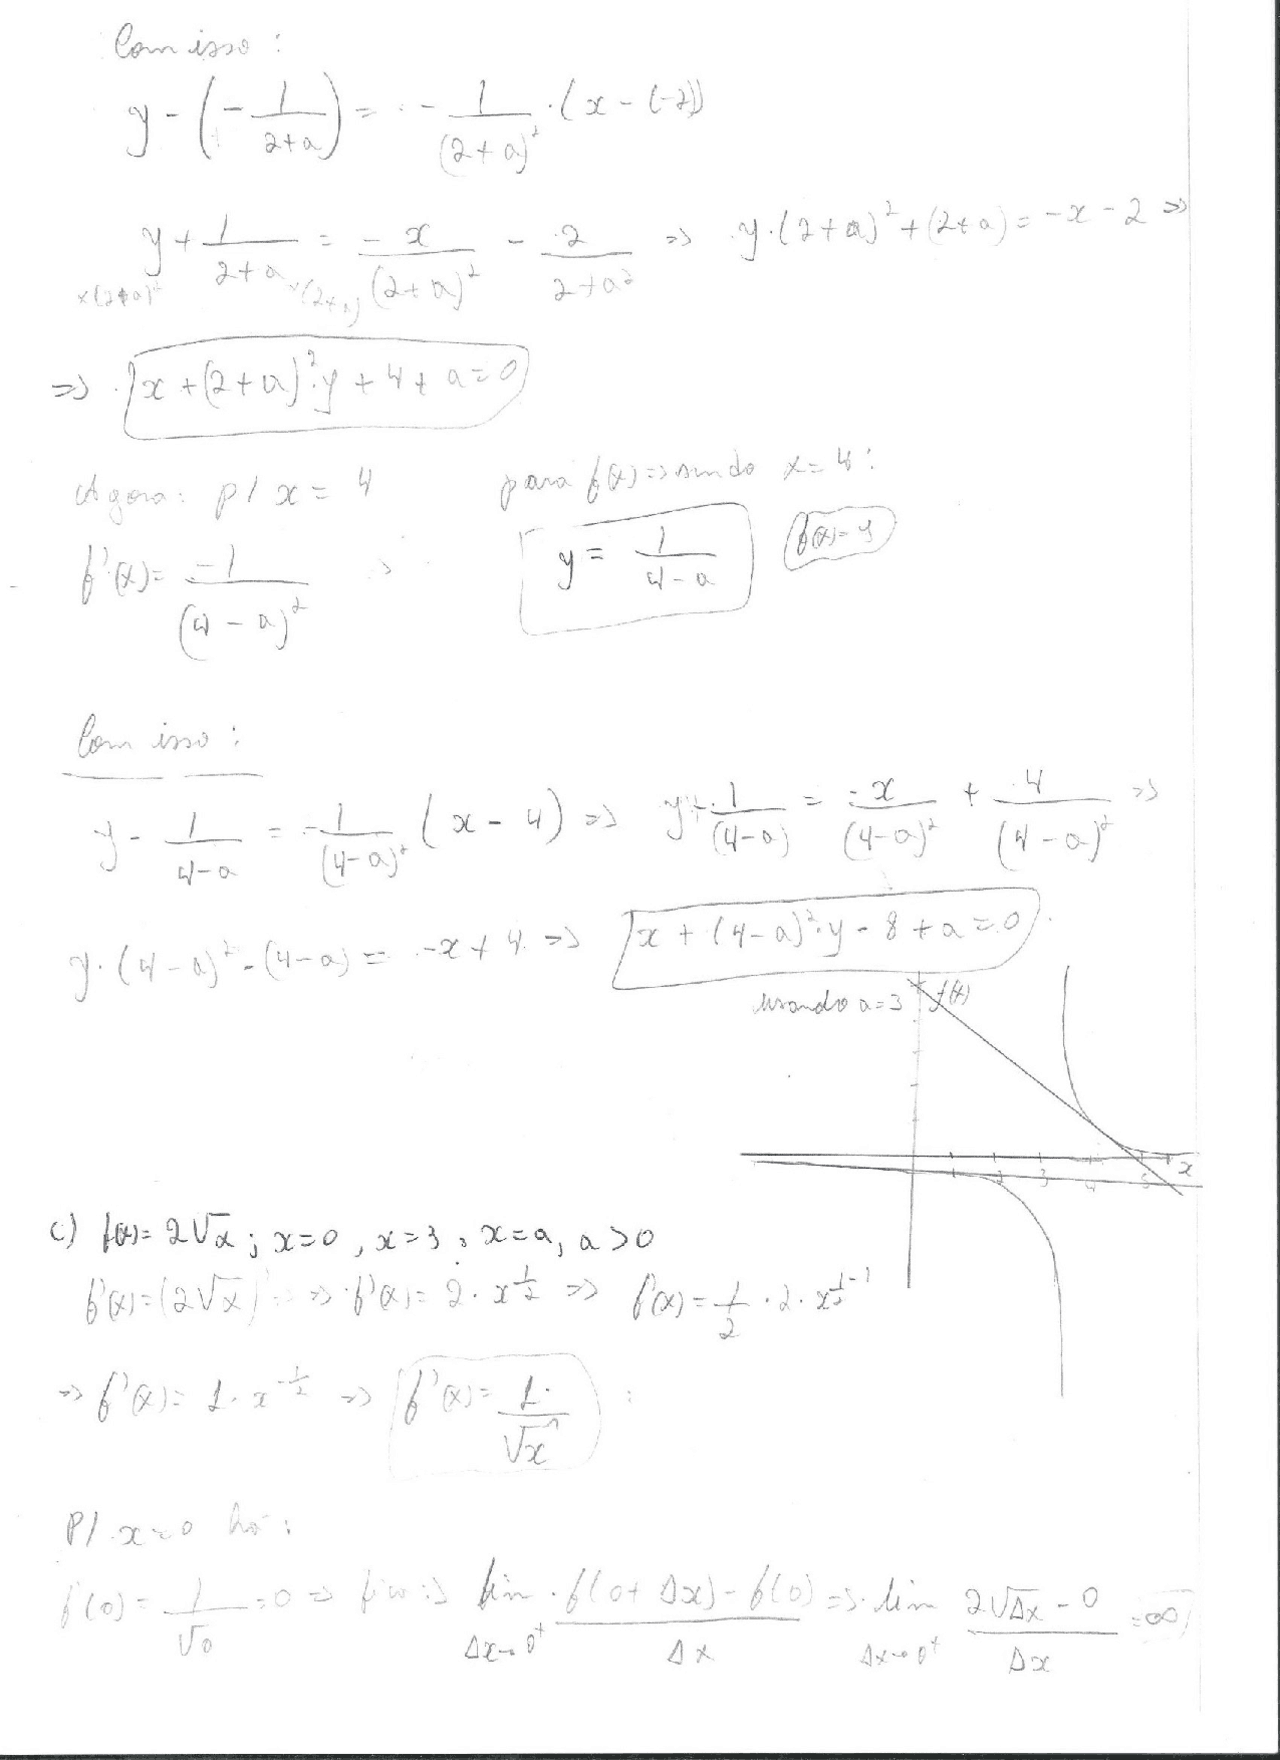 Com isso:
y - (- 1/(2+a)) = - 1/(2+a)² · (x - (-2))
y + 1/(2+a) = - x/(2+a)² - 2/(2+a²) => y·(2+a)² + (2+a) = -x - 2 =>
×(2+a)² ×(2+a)
=> x + (2+a)²·y + 4 + a = 0
Agora: p/ x = 4 para f(x) => sendo x = 4:
f'(x) = -1/(4-a)² y = 1/(4-a) f(x) = y
Com isso:
y - 1/(4-a) = - 1/(4-a)² (x - 4) => y + 1/(4-a) = -x/(4-a)² + 4/(4-a)² =>
y·(4-a)² - (4-a) = -x + 4 => x + (4-a)²·y - 8 + a = 0
usando a=3 f(x)
1 2 3 4 5 x
c) f(x) = 2√x ; x=0, x=3, x=a, a>0
f'(x) = (2√x)' => f'(x) = 2·x^(1/2) => f'(x) = 1/2 · 2 · x^(1/2 - 1)
=> f'(x) = 1·x^(-1/2) => f'(x) = 1/√x
P/ x=0 há:
f'(0) = 1/√0 = 0 => lim Δx→0⁺ (f(0+Δx) - f(0))/Δx => lim Δx→0⁺ (2√Δx - 0)/Δx = ∞